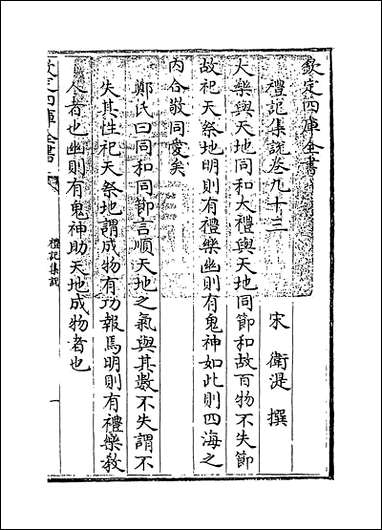 欽定四庫全書
禮記集說卷九十三 宋 衛湜 撰
大樂與天地同和大禮與天地同節和故百物不失節
故祀天祭地明則有禮樂幽則有鬼神如此則四海之
内合敬同愛矣
鄭氏曰同和同節言順天地之氣與其數不失謂不
失其性祀天祭地謂成物有功報焉明則有禮樂教
人者也幽則有鬼神助天地成物者也
欽定四庫全書 禮記集說 一